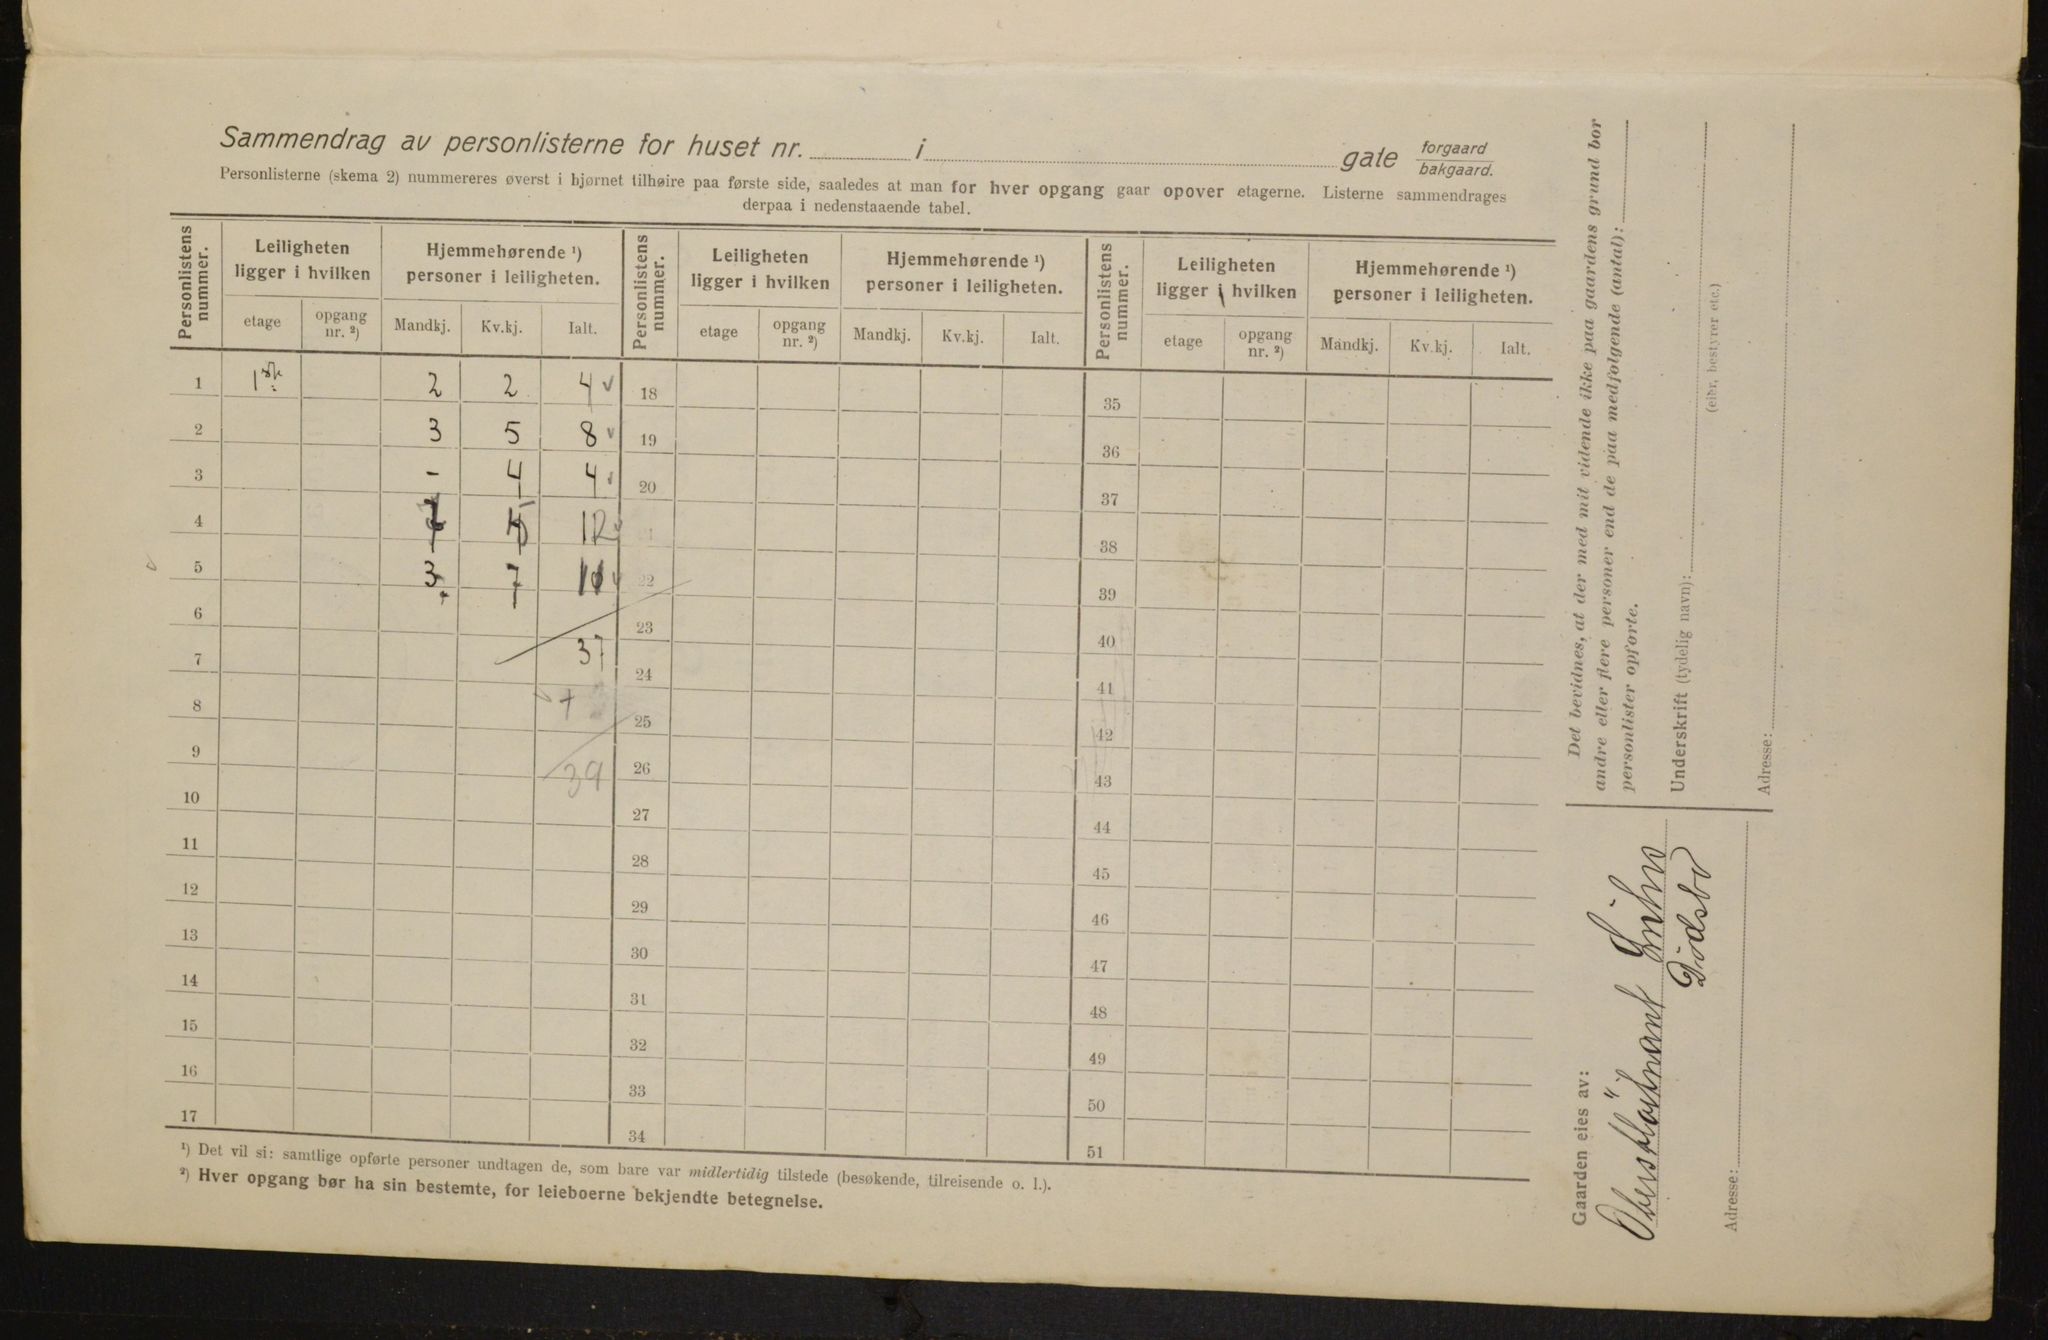 Sammendrag av personlisterne for huset nr. i gate forgaard bakgaard.
Personlisterne (skema 2) nummereres øverst i hjørnet tilhøire paa første side, saaledes at man for hver opgang gaar opover etagerne. Listerne sammendrages
derpaa i nedenstaaende tabel.
Personlistens nummer. Leiligheten ligger i hvilken Hjemmehørende ¹) personer i leiligheten. Personlistens nummer. Leiligheten ligger i hvilken Hjemmehørende ¹) personer i leiligheten. Personlistens nummer. Leiligheten ligger i hvilken Hjemmehørende ¹) personer i leiligheten.
etage opgang nr. ²) Mandkj. Kv.kj. Ialt. etage opgang nr. ²) Mandkj. Kv.kj. Ialt. etage opgang nr. ²) Mandkj. Kv.kj. Ialt.
1 1ste 2 2 4 18 35
2 3 5 8 19 36
3 - 4 4 20 37
4 5 12 21 38
5 3 7 22 39
6 23 40
7 37 24 41
8 25 42
9 39 26 43
10 27 44
11 28 45
12 29 46
13 30 47
14 31 48
15 32 49
16 33 50
17 34 51
¹) Det vil si: samtlige opførte personer undtagen de, som bare var midlertidig tilstede (besøkende, tilreisende o. l.).
²) Hver opgang bør ha sin bestemte, for leieboerne bekjendte betegnelse.
Det bevidnes, at der med mit vidende ikke paa gaardens grund bor
andre eller flere personer end de paa medfølgende (antal):
personlister opførte.
Underskrift (tydelig navn):
(eier, bestyrer etc.)
Adresse:
Gaarden eies av:
Dödsbo
Adresse: